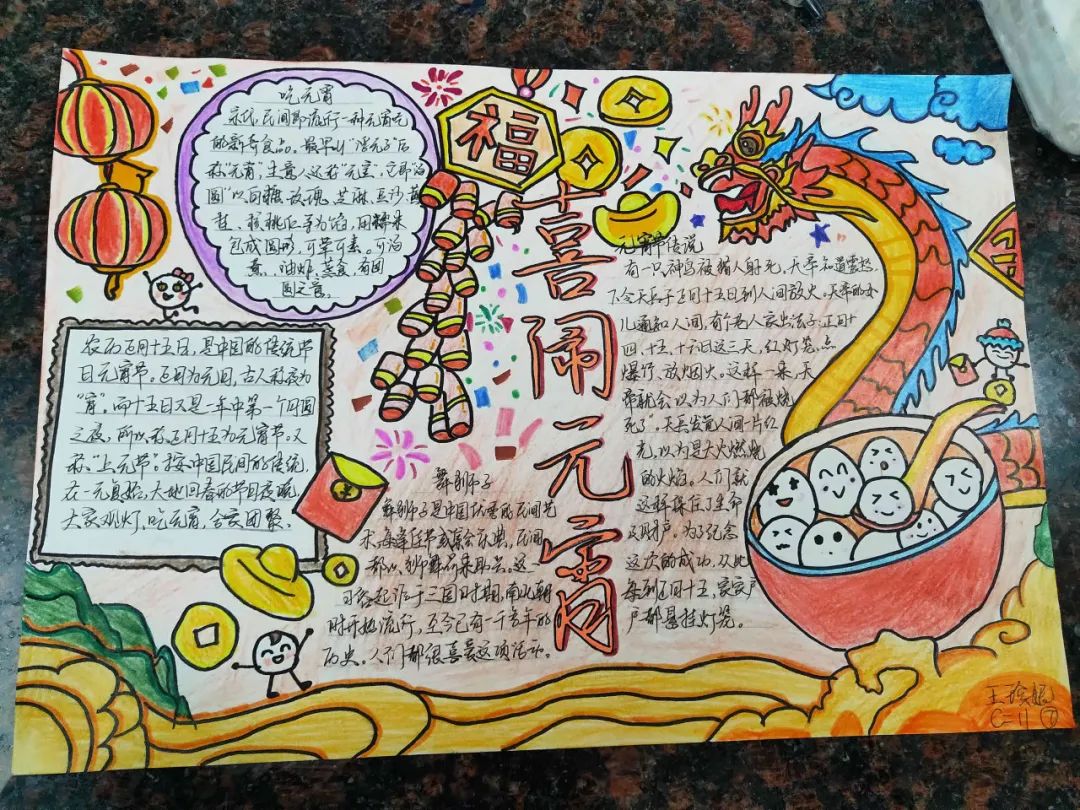 吃元宵
宋代,民间即流行一种元宵吃
的新奇食品。最早叫“浮元子”后
称“元宵”,生意人还称“元宝”,它即“汤
圆”以白糖、玫瑰、芝麻、豆沙、黄
桂、核桃仁等为馅,用糯米
包成圆形,可荤可素,可汤
煮、油炸、蒸食,有团
圆之意。
农历正月十五日,是中国的传统节
日元宵节。正月为元月,古人称夜为
“宵”。而十五日又是一年中第一个月圆
之夜,所以称正月十五为元宵节。又
称“上元节”。按中国民间的传统,
在一元复始,大地回春的节日夜晚,
大家观灯、吃元宵,合家团聚、
福
喜闹元宵
舞狮子
舞狮子是中国优秀的民间艺
术,每逢佳节或集会庆典,民间
都以狮舞前来助兴。这一
习俗起源于三国时期,南北朝
时开始流行,至今已有一千多年的
历史。人们都很喜爱这项活动。
元宵节传说
有一只神鸟被猎人射死,天帝知道震怒、
下令天兵于正月十五日到人间放火。天帝的女
儿通知人间,有个老人家出法子:正月十
四、十五、十六日这三天,红灯笼、点
爆竹、放烟火。这样一来,天
帝就会以为人们都被烧
死了。天兵发觉人间一片红
光,以为是大火燃烧
的火焰。人们就
这样保住了生命
及财产。为了纪念
这次的成功,从此
每到正月十五,家家户
户都悬挂灯笼。